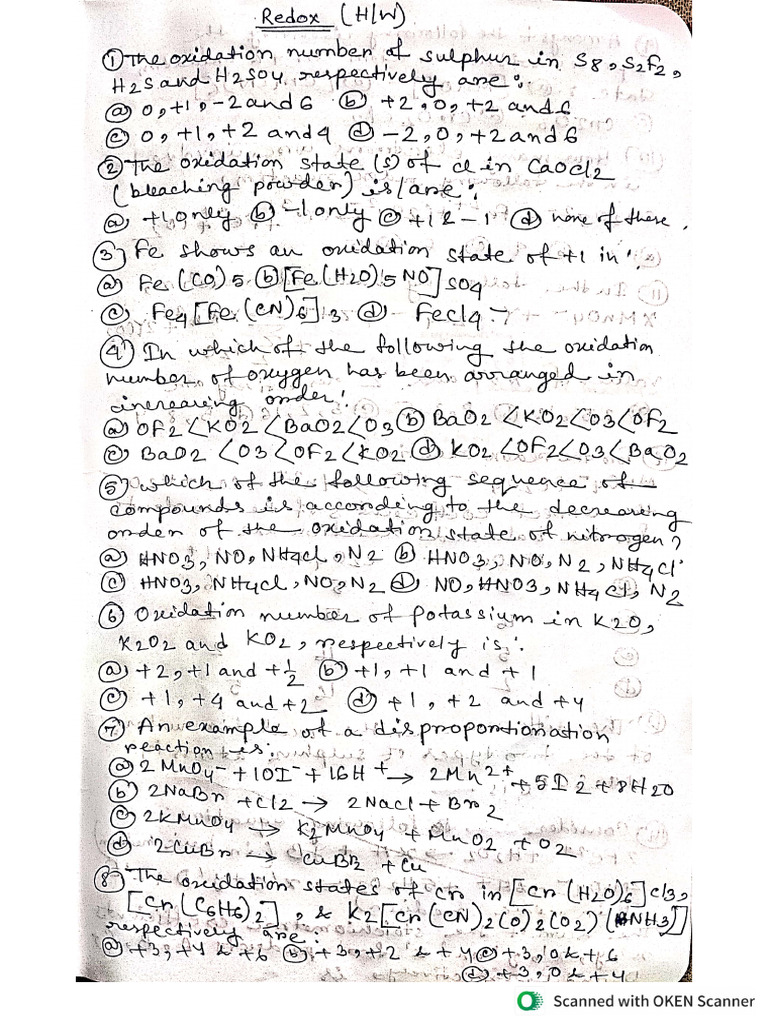 Redox (H/W)
① The oxidation number of sulphur in S8, S2F2,
H2S and H2SO4 respectively are:
ⓐ 0, +1, -2 and 6 ⓑ +2, 0, +2 and 6
ⓒ 0, +1, +2 and 4 ⓓ -2, 0, +2 and 6
② The oxidation state (s) of cl in CaOCl2
(bleaching powder) is/are:
ⓐ +1 only ⓑ -1 only ⓒ +1 & -1 ⓓ none of these.
③ Fe shows an oxidation state of +1 in:
ⓐ Fe(CO)5 ⓑ [Fe(H2O)5 NO] SO4
ⓒ Fe4[Fe(CN)6]3 ⓓ FeCl4-
④ In which of the following the oxidation
number of oxygen has been arranged in
increasing order:
ⓐ OF2<KO2<BaO2<O3 ⓑ BaO2<KO2<O3<OF2
ⓒ BaO2<O3<OF2<KO2 ⓓ KO2<OF2<O3<BaO2
⑤ which of the following sequence of
compounds is according to the decreasing
order of the oxidation state of nitrogen?
ⓐ HNO3, NO, NH4Cl, N2 ⓑ HNO3, NO, N2, NH4Cl
ⓒ HNO3, NH4Cl, NO, N2 ⓓ NO, HNO3, NH4Cl, N2
⑥ Oxidation number of potassium in K2O,
K2O2 and KO2, respectively is:
ⓐ +2, +1 and +1/2 ⓑ +1, +1 and +1
ⓒ +1, +4 and +2 ⓓ +1, +2 and +4
⑦ An example of a disproportionation
reaction is:
ⓐ 2MnO4- + 10I- + 16H+ → 2Mn2+ + 5I2 + 8H2O
ⓑ 2NaBr + Cl2 → 2NaCl + Br2
ⓒ 2KMnO4 → K2MnO4 + MnO2 + O2
ⓓ 2CuBr → CuBr2 + Cu
⑧ The oxidation states of Cr in [Cr(H2O)6]Cl3,
[Cr(C6H6)2], & K2[Cr(CN)2(O)2(O2)(NH3)]
respectively are:
ⓐ +3, +4 & +6 ⓑ +3, +2 & +4 ⓒ +3, 0 & +6
ⓓ +3, 0 & +4
Scanned with OKEN Scanner